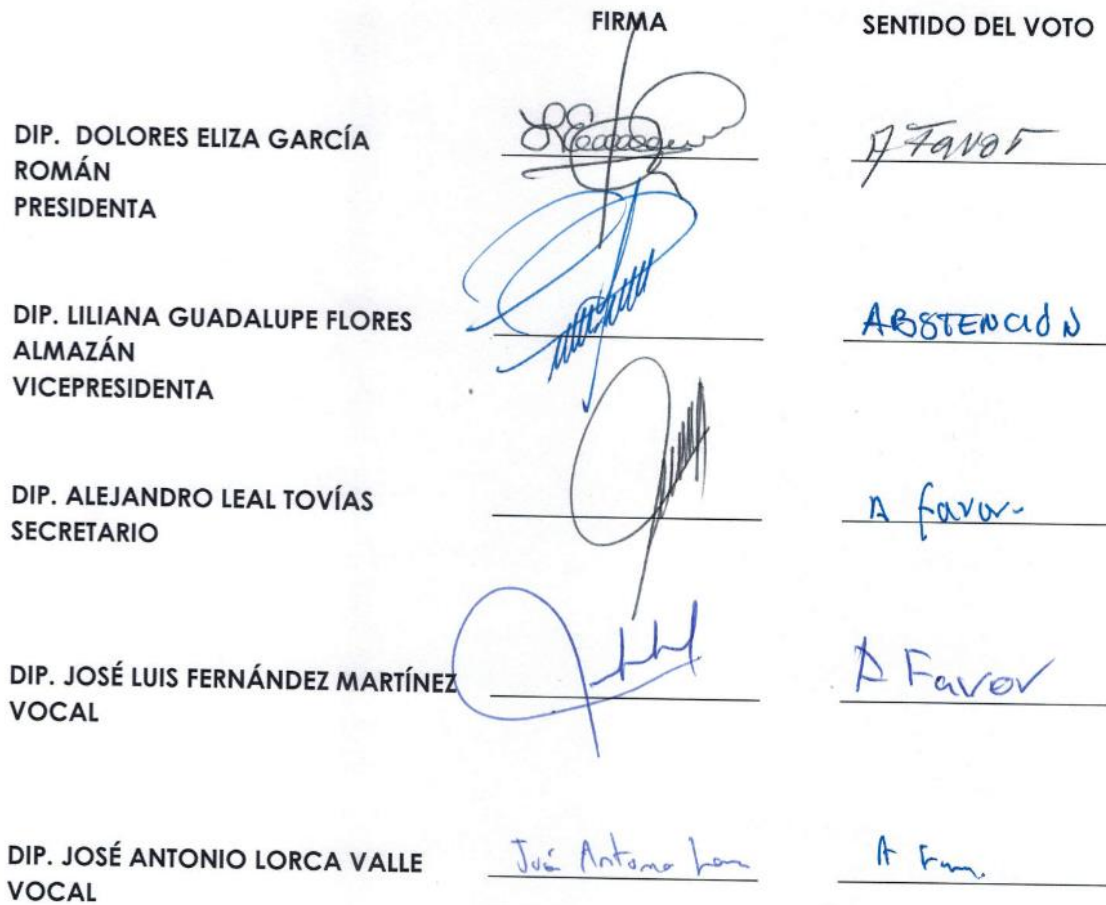 FIRMA SENTIDO DEL VOTO
DIP. DOLORES ELIZA GARCÍA
ROMÁN
PRESIDENTA
A Favor
DIP. LILIANA GUADALUPE FLORES
ALMAZÁN
VICEPRESIDENTA
ABSTENCIÓN
DIP. ALEJANDRO LEAL TOVÍAS
SECRETARIO
A favor
DIP. JOSÉ LUIS FERNÁNDEZ MARTÍNEZ
VOCAL
A Favor
DIP. JOSÉ ANTONIO LORCA VALLE
VOCAL
José Antonio
A